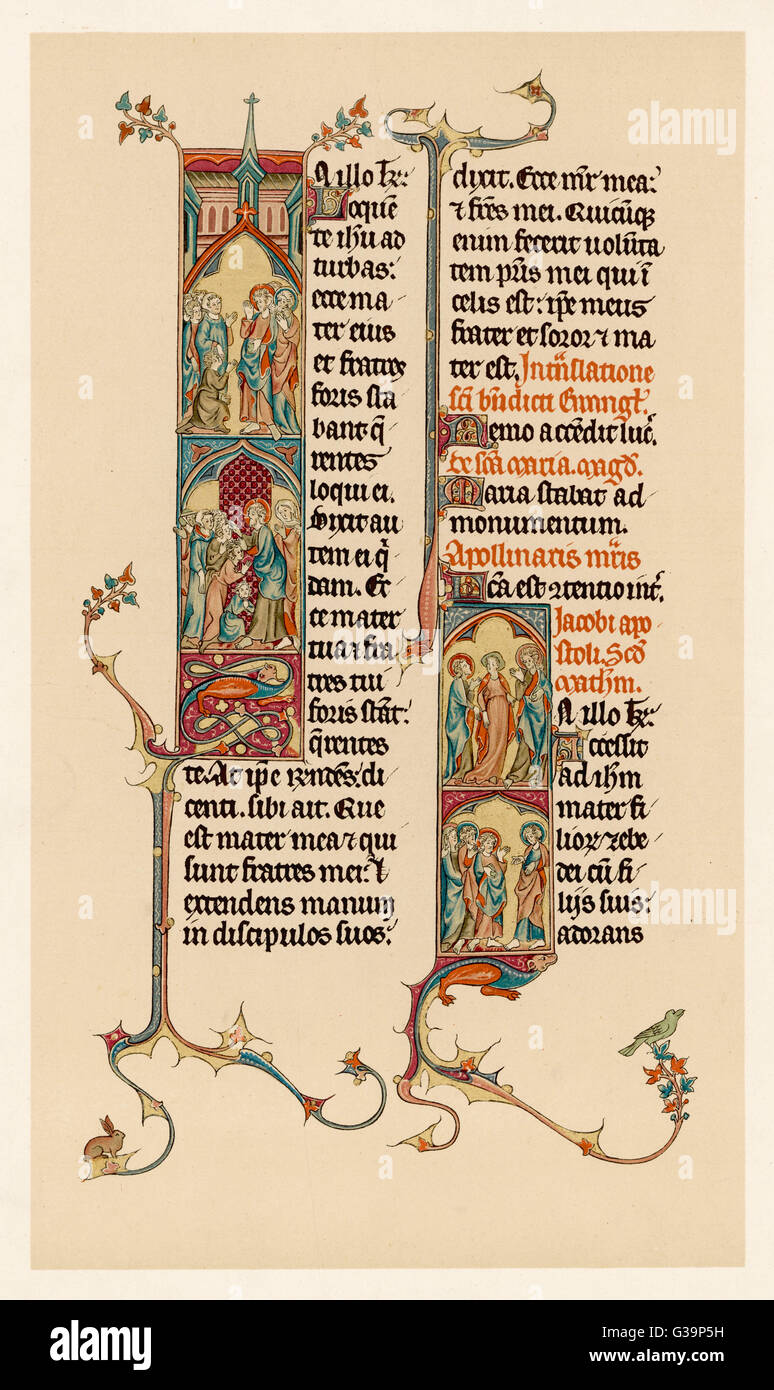 N illo t̄r:
Loquē
te ih̄u ad
turbas:
ecce ma-
ter eius
et fratres
foris sta
bant q̄
rentes
loqui ei.
Dixit au
tem ei q̄
dam. Ec
ce mater
tua ⁊ fra
tres tui
foris stāt:
q̄rentes
te. At ip̄e rn̄dēs. di
centi. sibi ait. Que
est mater mea ⁊ qui
sunt fratres mei: ⁊
extendens manum
in discipulos suos:
dixit. Ecce mr̄ mea:
⁊ fr̄es mei. Quicūqȝ
enim fecerit uolūta
tem pr̄is mei qui ī
celis est: ip̄e meus
frater et soror ⁊ ma
ter est. In tn̄slatione
sc̄i bn̄dicti Ewngl̄.
Nemo accendit luc̄.
De sc̄a maria. magd̄.
Maria stabat ad
monumentum.
Apollinaris mr̄is
Fc̄a est ⁊tentio int̄.
Jacobi apo-
stoli. Scd̄
mathm.
N illo t̄r:
Accessit
ad ih̄m
mater fi-
lioꝝ zebe
dei cū fi-
lijs suis:
adorans
alamy
alamy
Image ID: G39P5H
www.alamy.com